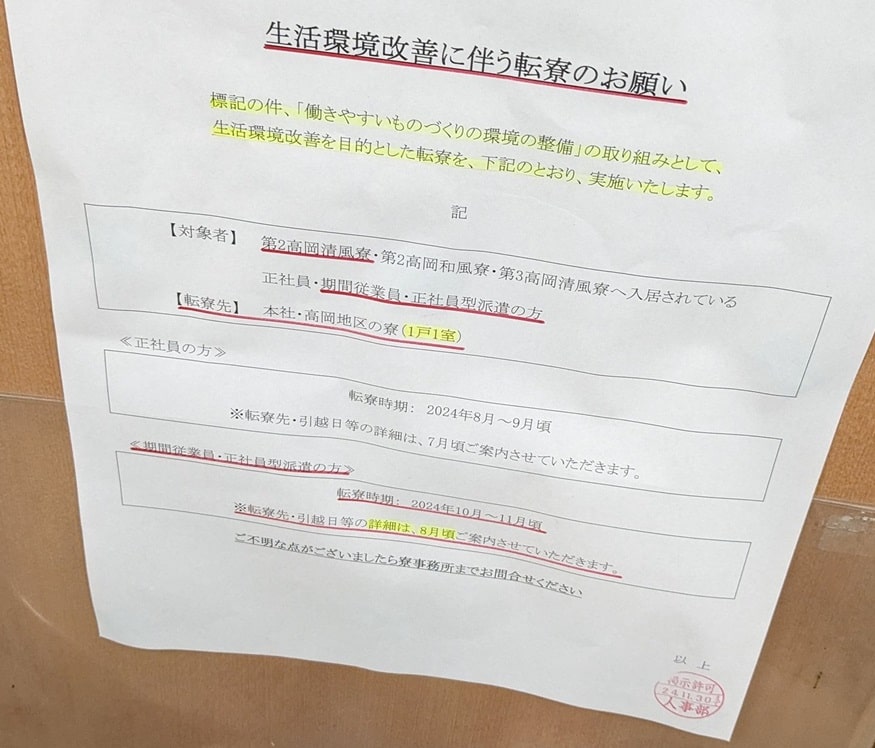 生活環境改善に伴う転寮のお願い
標記の件、「働きやすいものづくりの環境の整備」の取り組みとして、
生活環境改善を目的とした転寮を、下記のとおり、実施いたします。
記
【対象者】 第2高岡清風寮・第2高岡和風寮・第3高岡清風寮へ入居されている
正社員・期間従業員・正社員型派遣の方
【転寮先】 本社・高岡地区の寮(1戸1室)
≪正社員の方≫
転寮時期: 2024年8月～9月頃
※転寮先・引越日等の詳細は、7月頃ご案内させていただきます。
≪期間従業員・正社員型派遣の方≫
転寮時期: 2024年10月～11月頃
※転寮先・引越日等の詳細は、8月頃ご案内させていただきます。
ご不明な点がございましたら寮事務所までお問合せください
以上
掲示許可
24.11.30
人事部